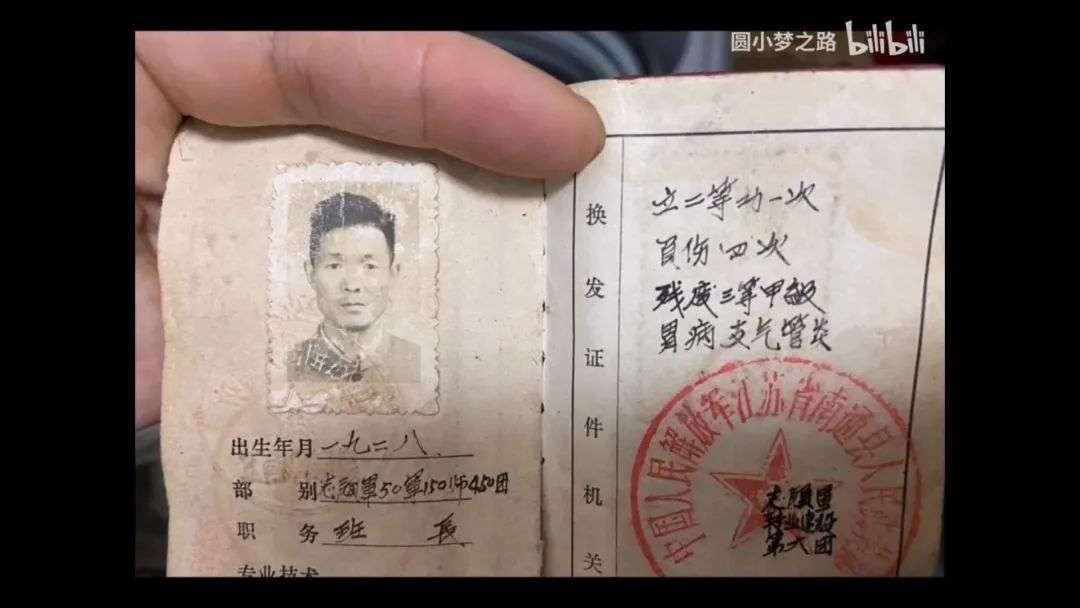 圆小梦之路 bilibili
出生年月 一九二八
部 别 志愿军50军150师450团
职 务 班 长
专业技术
换发证件机关
立二等功一次
负伤四次
残废三等甲级
胃病支气管炎
中国人民解放军江苏省南通县人民武装
志愿军
转业建设
第六团